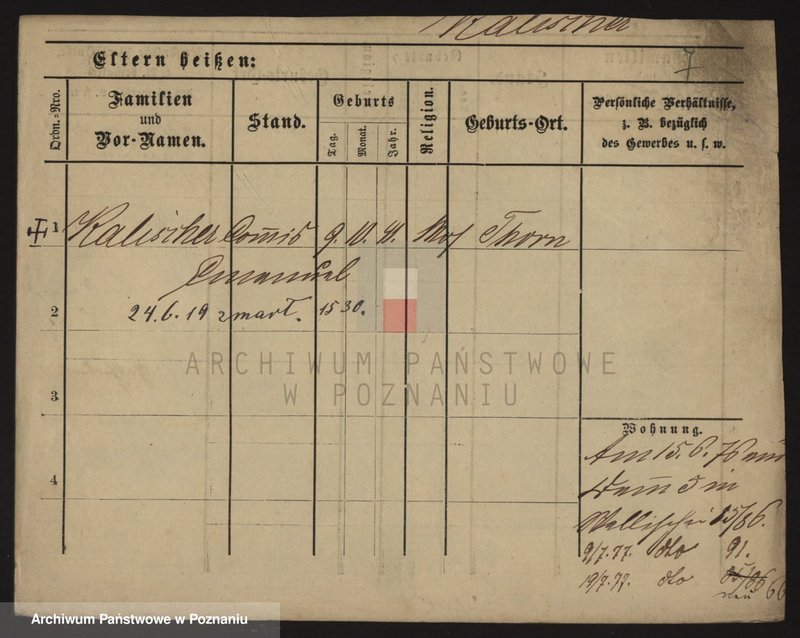 Kalischer
7
Eltern heißen:
Ordn.=Nro.
Familien
und
Vor-Namen.
Stand.
Geburts
Tag.
Monat.
Jahr.
Religion.
Geburts-Ort.
Persönliche Verhältnisse,
z. B. bezüglich
des Gewerbes u. s. w.
1 Kalischer Commis 9. 10. 41. Mos Thorn
Emanuel
2 24.6.19 zmarł. 15 30.
ARCHIWUM PAŃSTWOWE
W POZNANIU
3
4
Wohnung.
Am 15. 6. 76 aus
in
Wallischei 85/86.
9/7.77. dto 91.
19/7.77. dto 85/86
neu 66
Archiwum Państwowe w Poznaniu